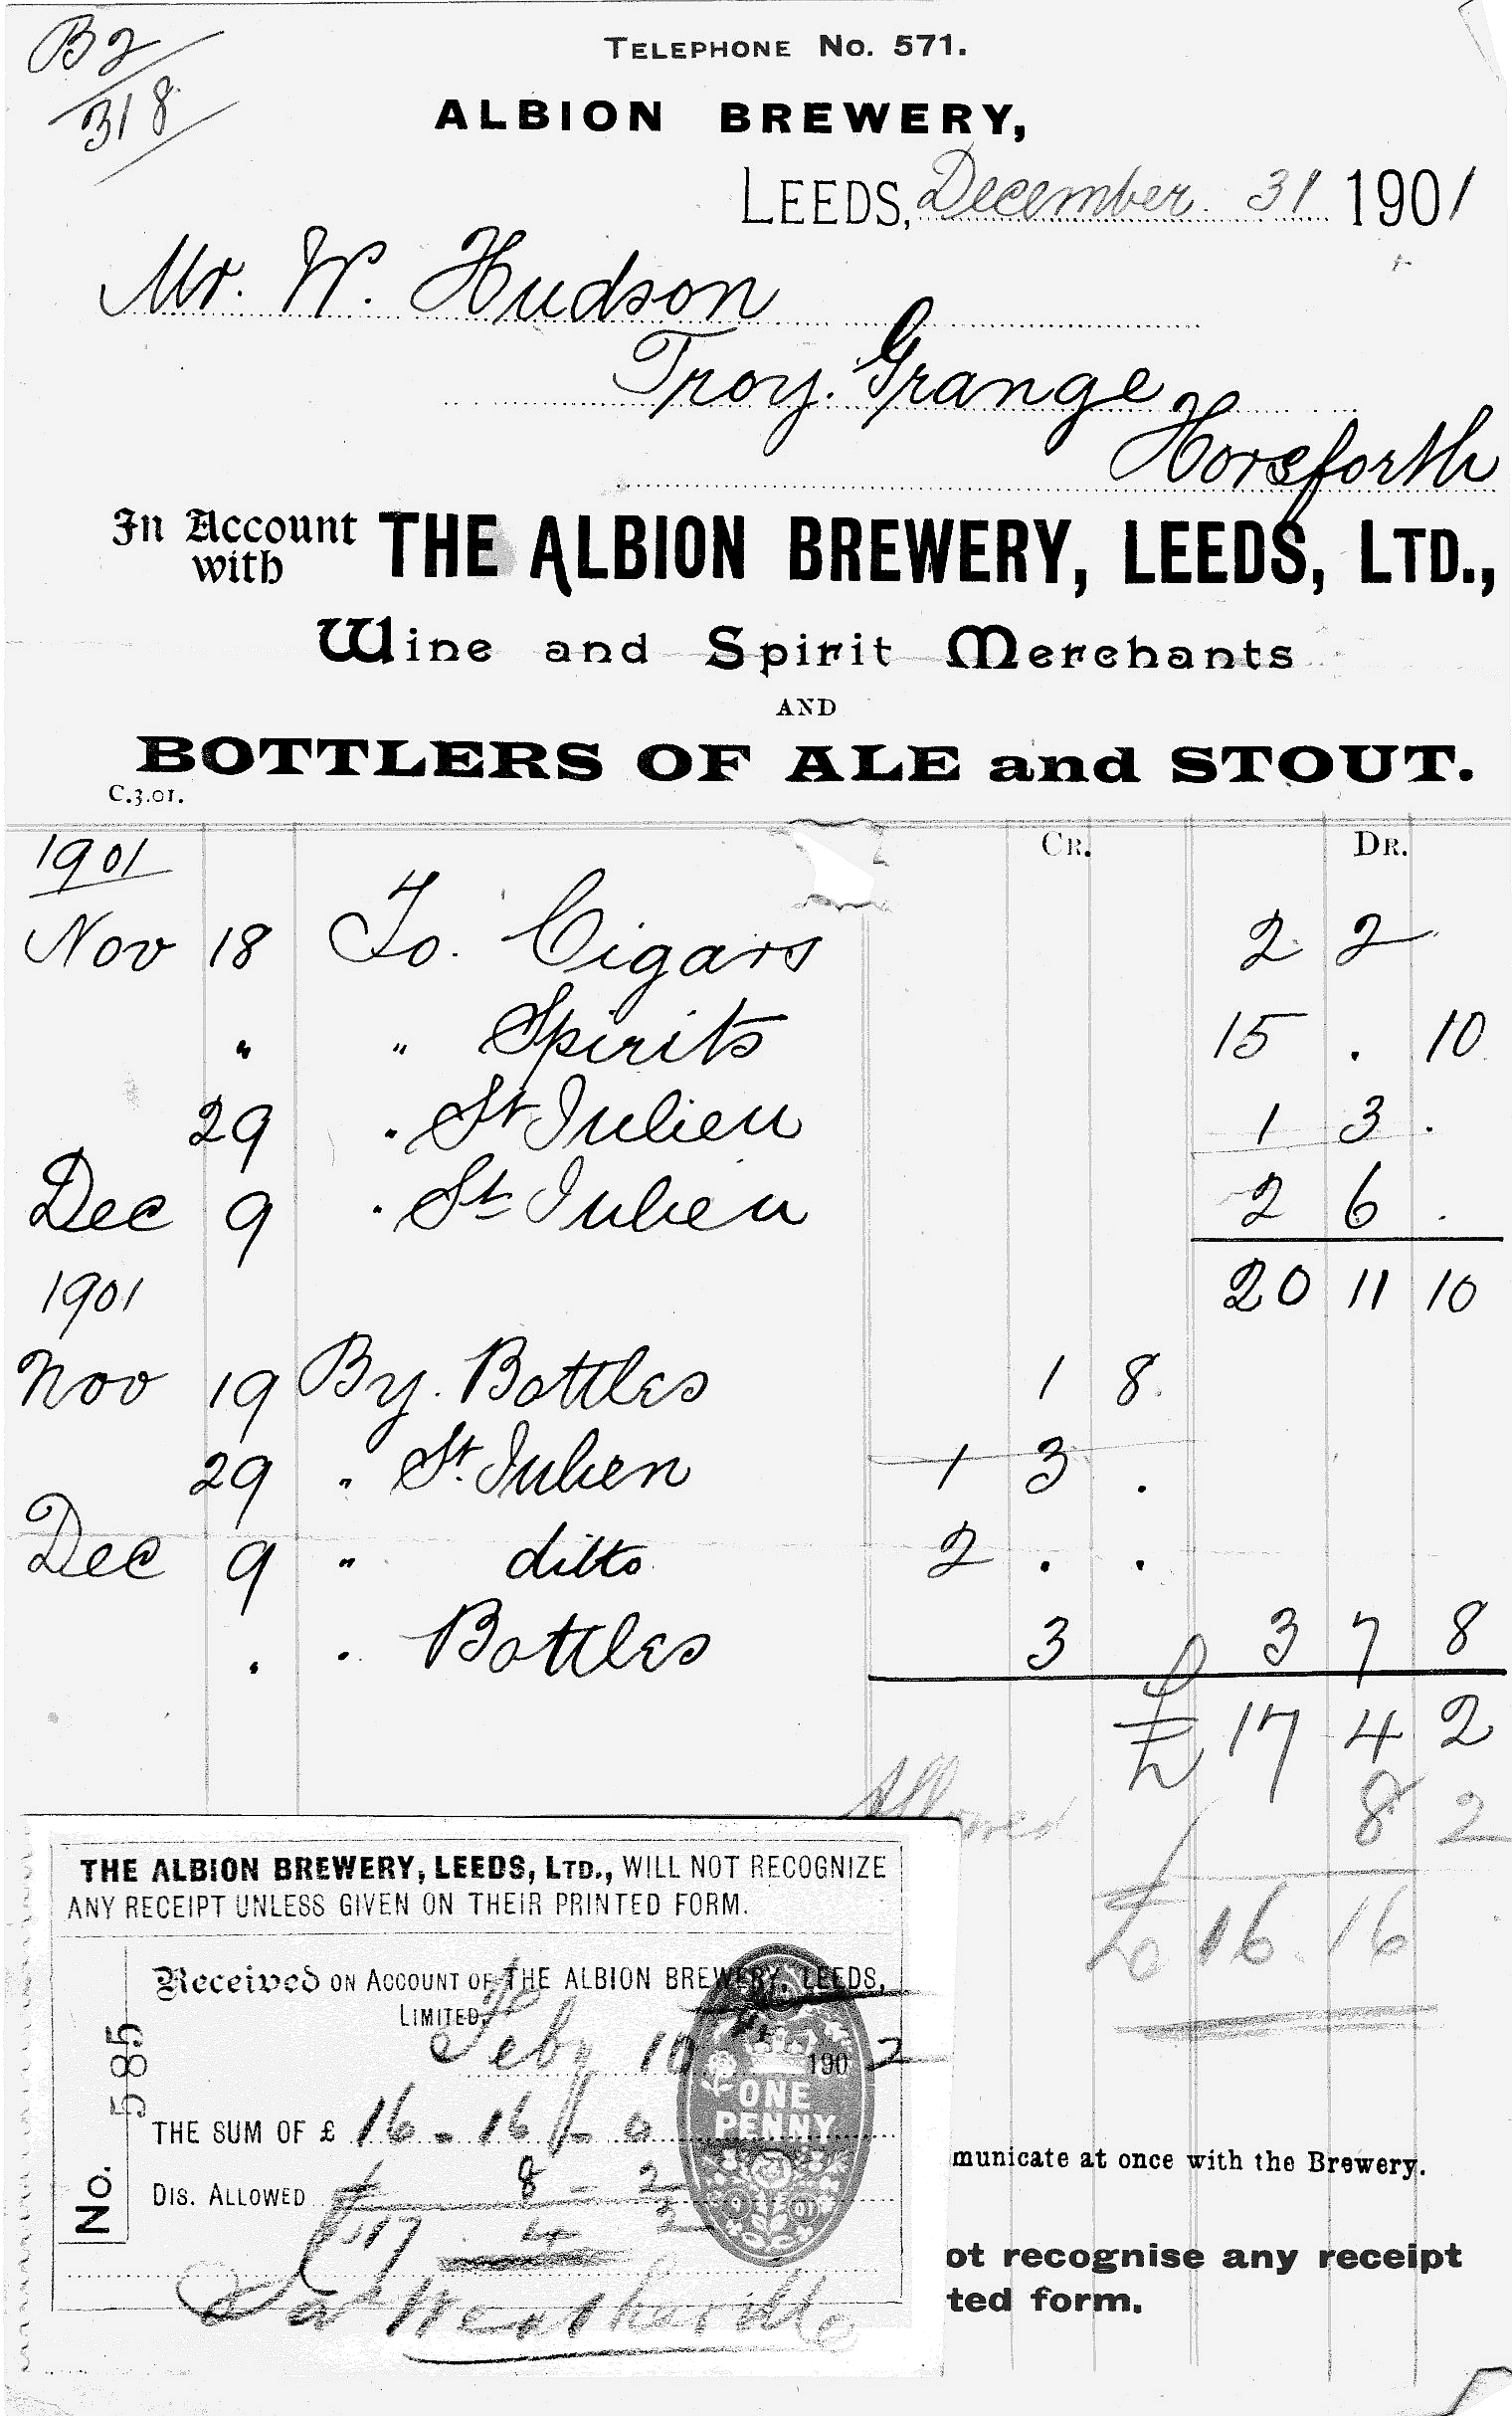 B2
318
TELEPHONE No. 571.
ALBION BREWERY,
LEEDS, December 31 1901
Mr. W. Hudson
Troy. Grange
Horsforth
In Account with THE ALBION BREWERY, LEEDS, LTD.,
Wine and Spirit Merchants
AND
BOTTLERS OF ALE and STOUT.
C.3.01.
CR. DR.
1901
Nov 18 To. Cigars 2 2 -
" " Spirits 15 . 10
29 " St Julien 1 3 .
Dec 9 " St Julien 2 6 .
20 11 10
1901
Nov 19 By. Bottles 1 8.
29 " St. Julien 1 3 .
Dec 9 " ditto 2 . .
. . Bottles 3 3 7 8
£ 17 4 2
Allowed 8 2
£ 16. 16
THE ALBION BREWERY, LEEDS, LTD., WILL NOT RECOGNIZE
ANY RECEIPT UNLESS GIVEN ON THEIR PRINTED FORM.
Received ON ACCOUNT OF THE ALBION BREWERY, LEEDS,
LIMITED,
Feby 10 1902
THE SUM OF £ 16 - 16 - 0
DIS. ALLOWED 8 - 2
£17 4 2
No. 585
ONE
PENNY
municate at once with the Brewery.
ot recognise any receipt
ted form.